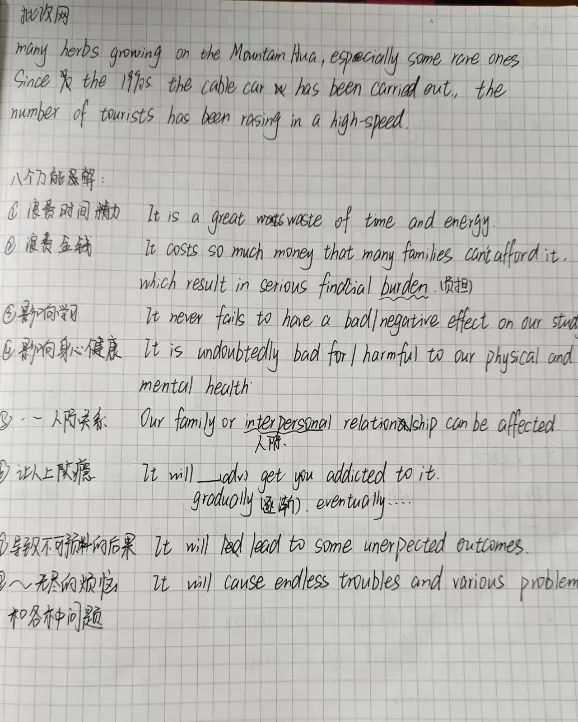 批改网
many herbs growing on the Mountain Hua, especially some rare ones.
Since the 1990s the cable car has been carried out, the
number of tourists has been rasing in a high-speed.
八个万能题解:
① 浪费时间精力 It is a great waste of time and energy.
② 浪费金钱 It costs so much money that many families can't afford it,
which result in serious finacial burden. (负担)
③ 影响学习 It never fails to have a bad/negative effect on our stud
④ 影响身心健康 It is undoubtedly bad for / harmful to our physical and
mental health.
⑤ ·· 人际关系 Our family or interpersonal relationship can be affected
人际.
⑥ 让人上瘾 It will __(adv) get you addicted to it.
gradually (逐渐). eventually....
导致不可预料的后果 It will lead to some unexpected outcomes.
~无尽的烦恼 It will cause endless troubles and various problem
和各种问题